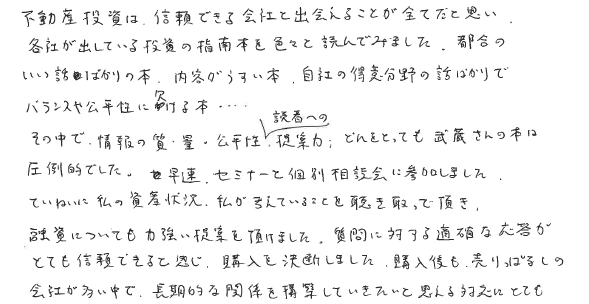 不動産投資は、信頼できる会社と出会えることが全てだと思い、
各社が出している投資の指南本を色々と読んでみました。都合の
いい話ばかりの本、内容がうすい本、自社の得意分野の話ばかりで
バランスや公平性に欠ける本‥‥
読者への
その中で、情報の質・量・公平性、提案力、どれをとっても武蔵さんの本は
圧倒的でした。早速、セミナーと個別相談会に参加しました。
ていねいに私の資産状況、私が考えていることを聴き取って頂き、
融資についても力強い提案を頂けました。質問に対する適確な応答が
とても信頼できると感じ、購入を決断しました。購入後も、売りっぱなしの
会社が多い中で、長期的な関係を構築していきたいと思える対応にとても